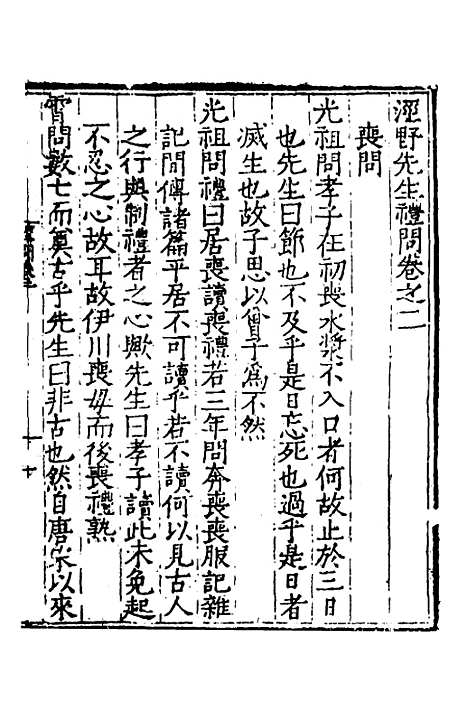 涇野先生禮問卷之二
喪問
光祖問孝子在初喪水漿不入口者何故止於三日
也先生曰節也不及乎是曰忘死也過乎是曰者
滅生也故子思以曾子爲不然
光祖問禮曰居喪讀喪禮若三年問奔喪喪服記雜
記間傳諸篇平居不可讀乎若不讀何以見古人
之行與制禮者之心歟先生曰孝子讀此未免起
不忍之心故耳故伊川喪母而後喪禮熟
霄問數七而奠古乎先生曰非古也然自唐宋以來